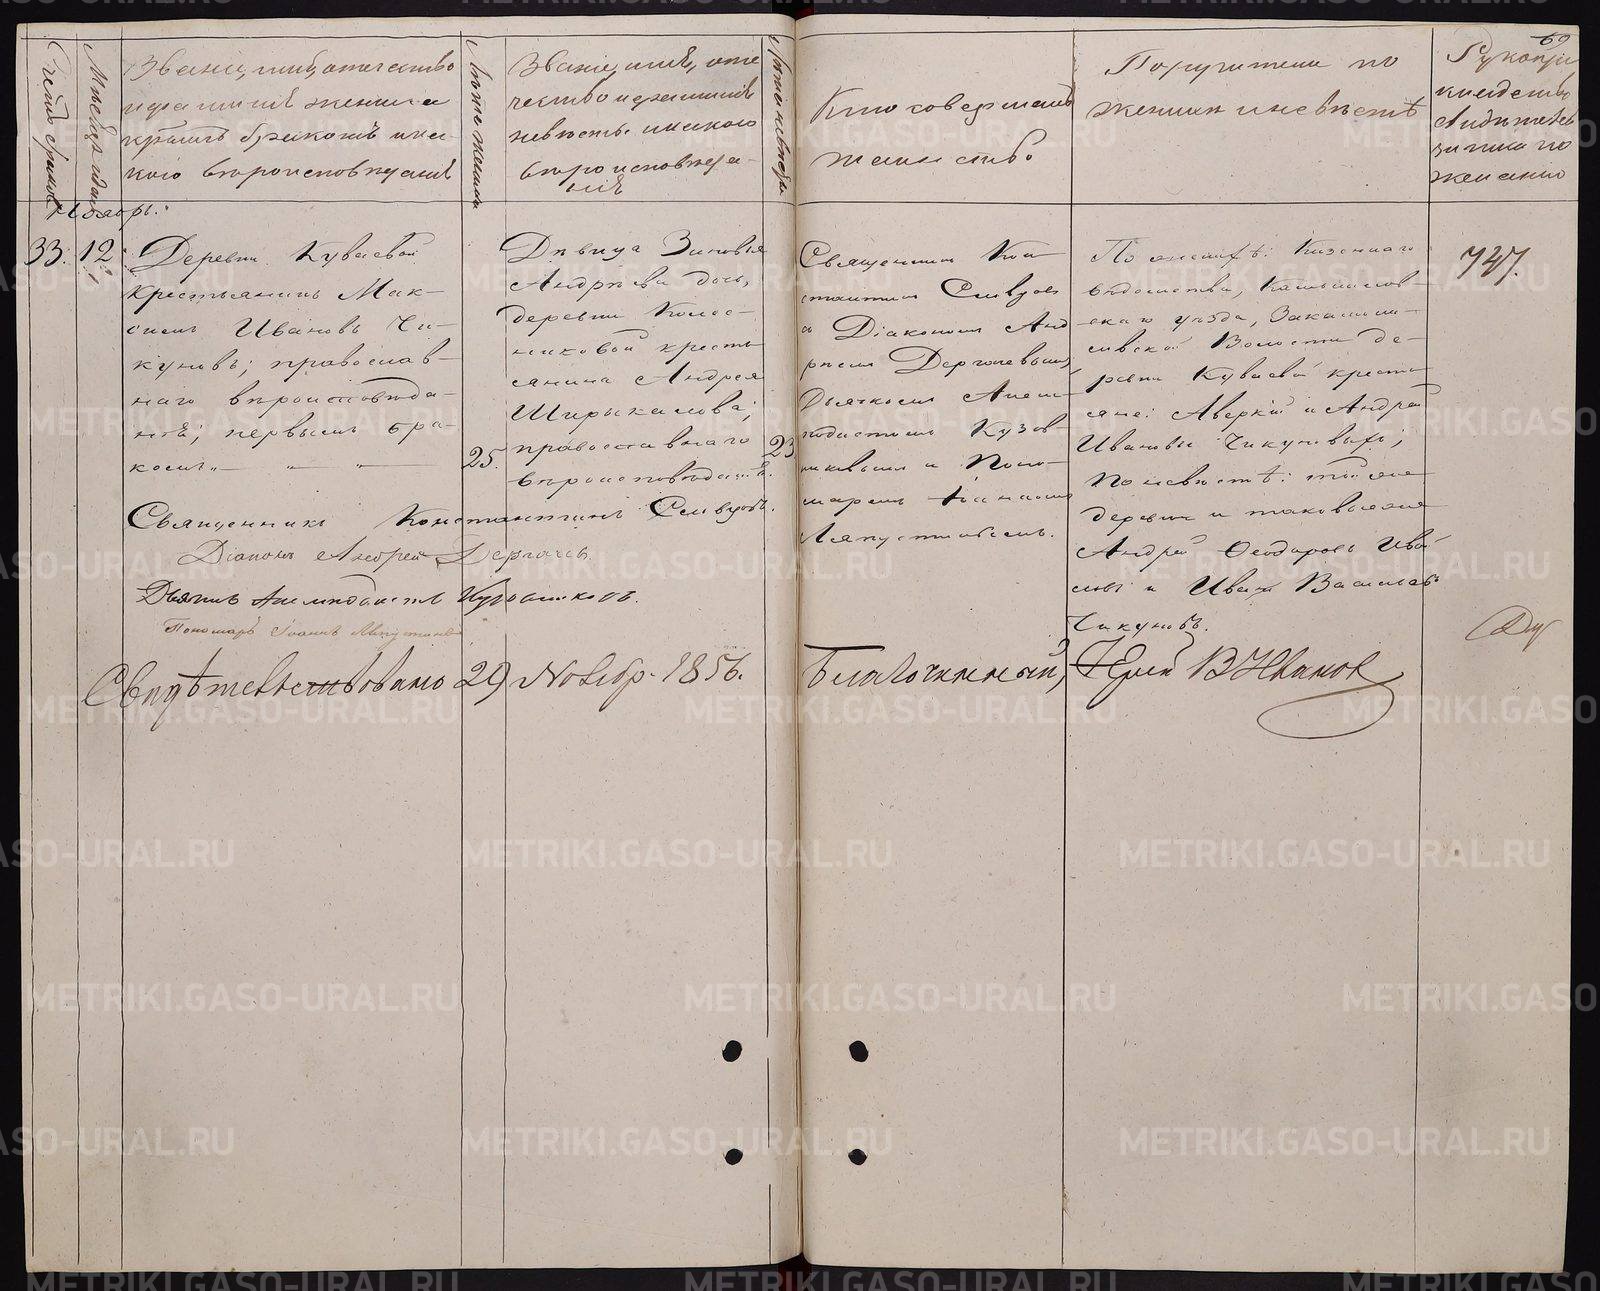 69
Счетъ браковъ
Мѣсяцъ и день
Званіе, имя, отчество
и фамилія жениха
и которымъ бракомъ и ка-
кого вѣроисповѣданія
Лѣта жениха
Званіе, имя, отче
чество и фамилія
невѣсты и какого
вѣроисповѣда-
нія
Лѣта невѣсты
Кто совершалъ
таинство
Поручители по
женихѣ и невѣстѣ
Рукопри
свидѣтель
записи по
желанію
Ноябрь:
33.
12
Деревни Куваевой
крестьянинъ Мак-
симъ Ивановъ Чи-
куновъ; православ-
наго вѣроисповѣда-
нія; первымъ бра-
комъ
25.
Дѣвица Зиновья
Андрѣева дочь,
деревни Колес-
никовой кресть
янина Андрея
Ширыкалова;
православнаго
вѣроисповѣданія.
23
Священникъ Кон
стантинъ Селивановъ
съ Діакономъ Анд
реемъ Дергачевымъ,
Дьячкомъ Анем-
подистомъ Кузов
никовымъ и Поно-
маремъ Іоанномъ
Ляпустинымъ.
По женихѣ: Казеннаго
вѣдомства, Камышлов-
скаго уѣзда, Закамыш-
ловской Волости де-
ревни Куваевой кресть
яне: Аверкій и Андрей
Ивановы Чикуновы;
По невѣстѣ: той же
деревни и таковые же
Андрей Ѳеодоровъ Ива
новъ и Иванъ Васильевъ
Чикуновъ.
747.
Священникъ Константинъ
Діаконъ Андрей Дергачевъ
Дьячекъ Анемподистъ
Пономарь Іоаннъ Ляпустинъ
Свидѣтельствовано 29 Ноябр. 1856.
Благочинный, Іерей В Ивановъ
METRIKI.GASO-URAL.RU